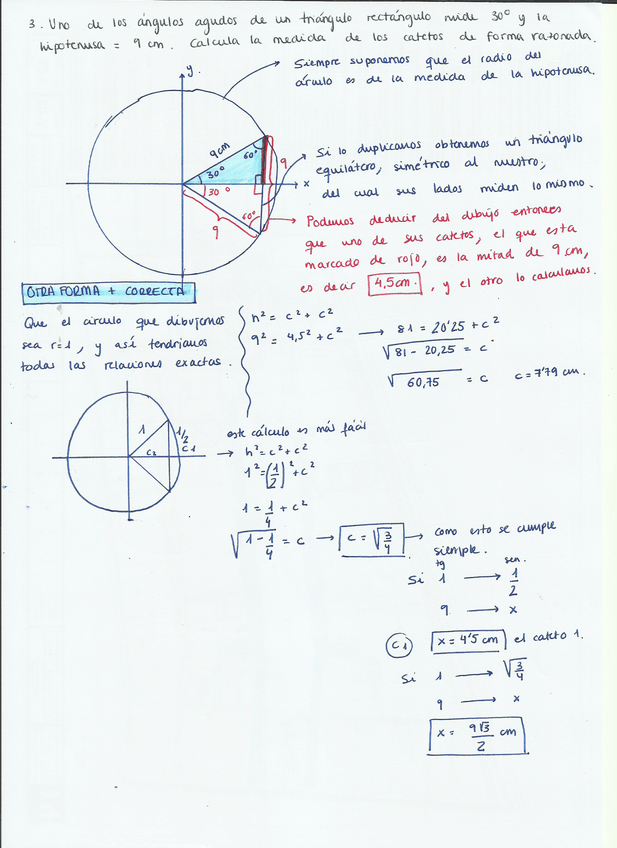 3. Uno de los ángulos agudos de un triángulo rectángulo mide 30º y la
hipotenusa = 9 cm. Calcula la medida de los catetos de forma razonada.
Siempre suponemos que el radio del
círculo es de la medida de la hipotenusa.
y
9cm
60º
30º
30º
60º
9
9
x
Si lo duplicamos obtenemos un triángulo
equilátero, simétrico al nuestro,
del cual sus lados miden lo mismo.
Podemos deducir del dibujo entonces
que uno de sus catetos, el que esta
marcado de rojo, es la mitad de 9 cm,
es decir 4,5cm. , y el otro lo calculamos.
OTRA FORMA + CORRECTA
Que el círculo que dibujemos
sea r=1, y así tendríamos
todas las relaciones exactas.
h² = c² + c²
9² = 4,5² + c² → 81 = 20'25 + c²
√81 - 20,25 = c
√60,75 = c c = 7'79 cm.
1
1/2
C1
C2
este cálculo es más fácil
→ h² = c² + c²
1² = (1/2)² + c²
1 = 1/4 + c²
√1 - 1/4 = c → c = √3/4 → como esto se cumple
siempre.
tg sen.
Si 1 → 1/2
9 → x
C1 x = 4'5 cm el cateto 1.
Si 1 → √3/4
9 → x
x = 9√3/2 cm